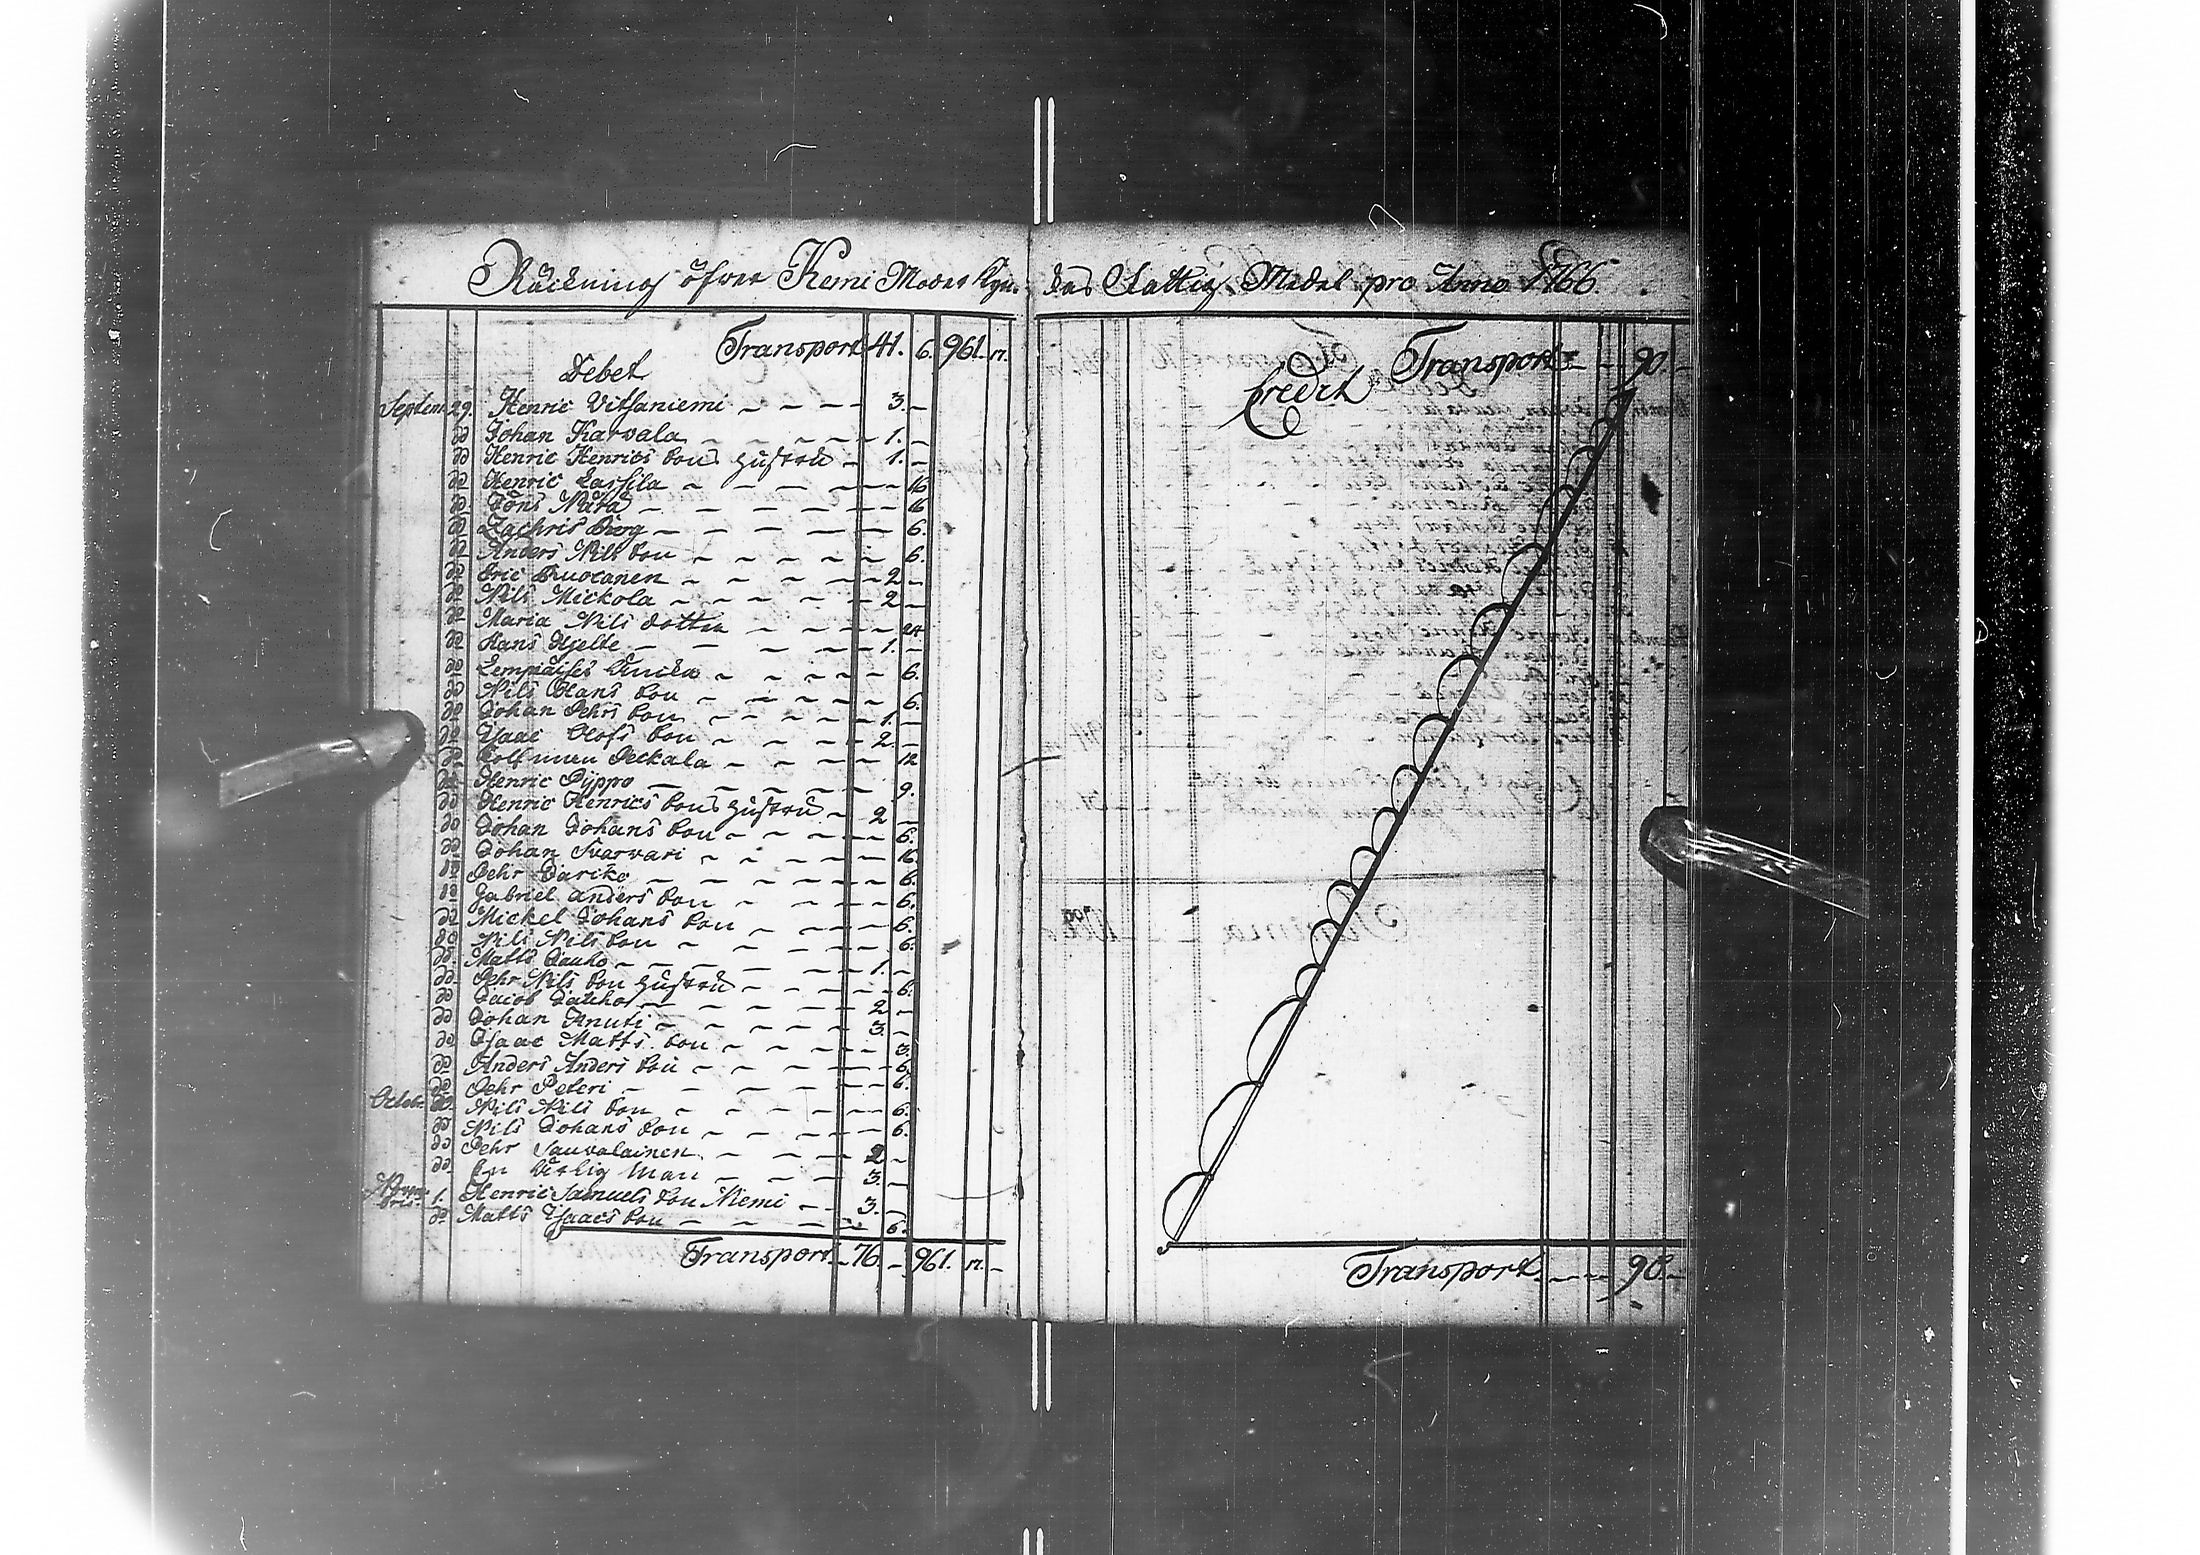 Räckning öfver Kemi Moder Kyrkas Fattig Medel pro Anno 1766.
Transport 41. 6. 961. 17.
Debet
Septem: 29. Henric Vitsaniemi - - - - 3. -
do Johan Karvala - - - - 1. -
do Henric Henrics sons hustru - 1. -
do Henric Lassila - - - - 16
do Jöns Nära - - - - 16
do Zachris Berg - - - - 6.
do Anders Nils son - - - - 6.
do Eric Buocanen - - - - 2 -
do Nils Mickola - - - - 2 -
do Maria Nils dotter - - - 24
do Hans Hjelte - - - - 1. -
do Lempiäises Encka - - - - 6.
do Nils Hans son - - - - 6.
do Johan Pehrs son - - - - 1. -
do Isaac Olofs son - - - - 2. -
do Peckala - - - - 12
do Henric Pyppo - - - - 9.
do Henric Henrics sons hustru - 2 -
do Johan Johans son - - - - 6.
do Johan Svarvari - - - - 16
do Pehr Jaricko - - - - 6.
do Gabriel Anders son - - - 6.
do Mickel Johans son - - - 6.
do Nils Nils son - - - - 6.
do Matts Jauho - - - - 1. -
do Pehr Nils son hustru - - - 6.
do Jacob Jauho - - - - 2 -
do Johan Knuti - - - - 3. -
do Isaac Matts son - - - - 3.
do Anders Anders son - - - - 6.
do Pehr Peteri - - - - 6.
Octob: do Nils Nils son - - - - 6.
do Nils Johans son - - - - 6.
do Pehr Sauvalainen - - - 2 -
do En ärlig man - - - 3. -
1. Henric Samuels son Niemi - - 3. -
do Matts Isaacs son - - - - 6.
Transport - 76. - 961. 17. -
Transport - - 90. -
Credit
Transport - - - 90. -